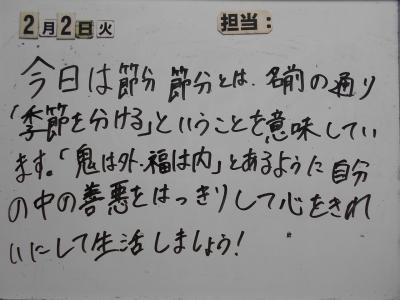 2月2日火 担当:
今日は節分 節分とは、名前の通り
「季節を分ける」ということを意味してい
ます。「鬼は外・福は内」とあるように自分
の中の善悪をはっきりして心をきれ
いにして生活しましょう!